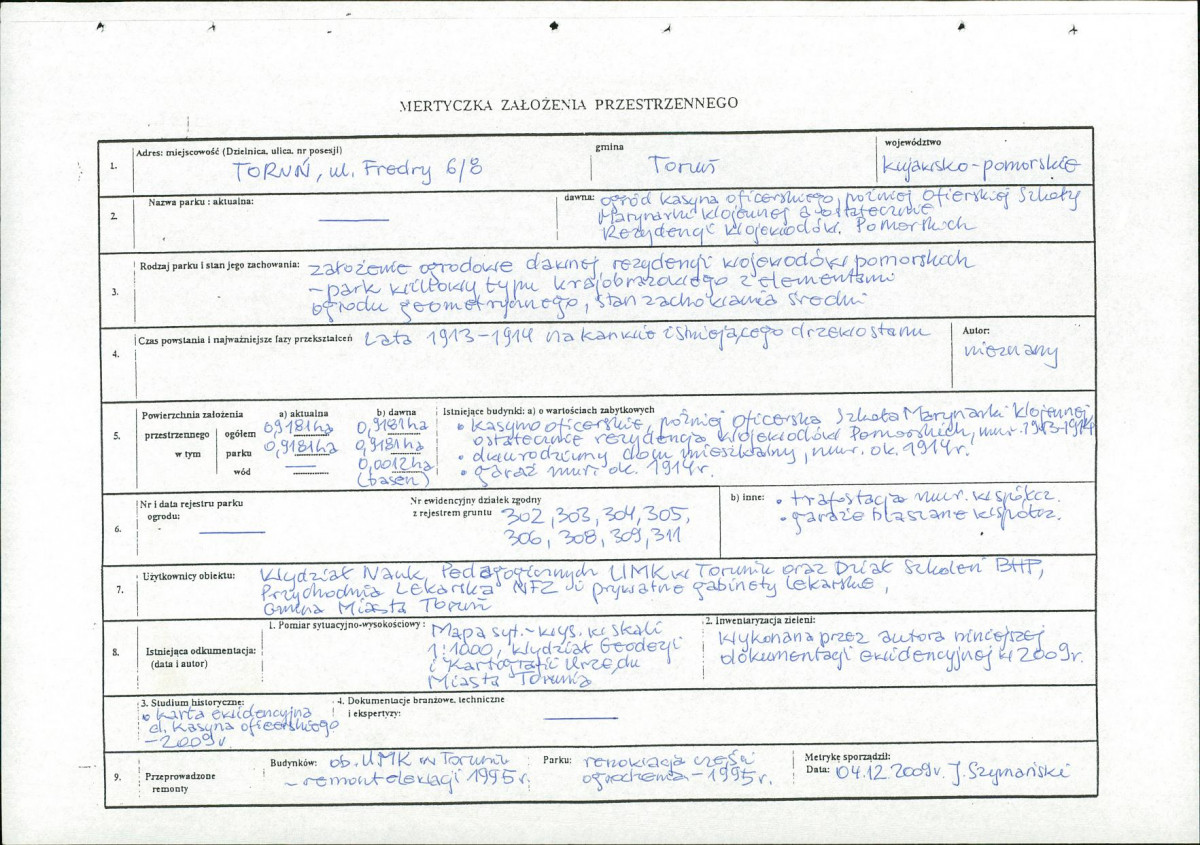 MERTYCZKA ZAŁOŻENIA PRZESTRZENNEGO
1. Adres: miejscowość (Dzielnica, ulica, nr posesji)
TORUŃ, ul. Fredry 6/8
gmina
Toruń
województwo
kujawsko-pomorskie
2. Nazwa parku : aktualna:
dawna: ogród kasyna oficerskiego, później Oficerskiej Szkoły
Marynarki Wojennej a ostatecznie
Rezydencji Wojewodów Pomorskich
3. Rodzaj parku i stan jego zachowania: założenie ogrodowe dawnej rezydencji wojewodów pomorskich
- park willowy typu krajobrazowego z elementami
ogrodu geometrycznego, stan zachowania średni
4. Czas powstania i najważniejsze fazy przekształceń lata 1913-1914 na kanwie istniejącego drzewostanu
Autor:
nieznany
5. Powierzchnia założenia
przestrzennego
w tym
ogółem
parku
wód
a) aktualna
0,9181ha
0,9181ha
—
b) dawna
0,9181ha
0,9181ha
0,0012ha
(basen)
Istniejące budynki: a) o wartościach zabytkowych
• kasyno oficerskie, później Oficerska Szkoła Marynarki Wojennej,
ostatecznie rezydencja Wojewodów Pomorskich, mur. 1913-1914
• dwurodzinny dom mieszkalny, mur. ok. 1914r.
• garaż mur. ok. 1914r.
6. Nr i data rejestru parku
ogrodu:
Nr ewidencyjny działek zgodny
z rejestrem gruntu 302, 303, 304, 305,
306, 308, 309, 311
b) inne: • trafostacja mur. współcz.
• garaże blaszane współcz.
7. Użytkownicy obiektu: Wydział Nauk Pedagogicznych UMK w Toruniu oraz Dział Szkoleń BHP,
Przychodnia Lekarska NFZ i prywatne gabinety lekarskie,
Gmina Miasta Toruń
8. Istniejąca odkumentacja:
(data i autor)
1. Pomiar sytuacyjno-wysokościowy :
Mapa syt.-wys. w skali
1:1000, Wydział Geodezji
i Kartografii Urzędu
Miasta Torunia
2. Inwentaryzacja zieleni:
Wykonana przez autora niniejszej
dokumentacji ewidencyjnej w 2009r.
3. Studium historyczne:
• karta ewidencyjna
d. Kasyna oficerskiego
- 2009r.
4. Dokumentacje branżowe, techniczne
i ekspertyzy:
9. Przeprowadzone
remonty
Budynków: ob. UMK w Toruniu
- remont elewacji 1995r.
Parku: renowacja części
ogrodzenia - 1995r.
Metrykę sporządził:
Data: 04.12.2009r. J. Szymański